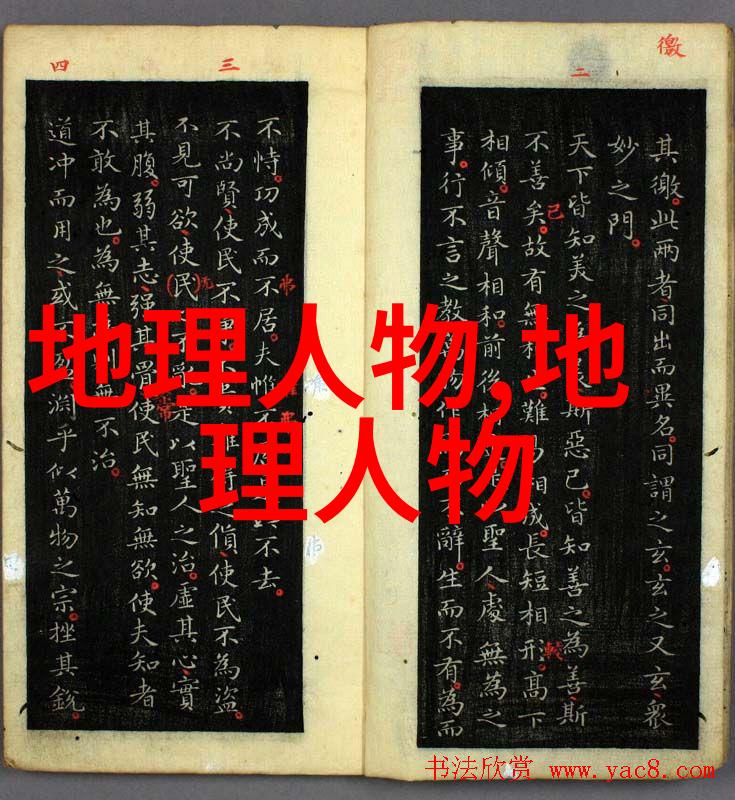 徼
二
其徼。此兩者、同出而異名。同謂之玄。玄之又玄、眾
妙之門。
天下皆知美之斯惡已。皆知善之為善斯
不善矣。故有無相難相成。長短相形。高下
相傾。音聲相和。前後聖人處無為之
事。行不言之教。物作辭。生而不有。為而
三
四
不恃。功成而不居。夫惟不不去。
不尚賢、使民不使民不為盜。
不見可欲、使民是以聖人之治。虛其心、實
其腹。弱其志、強其骨。使民無知無欲。使夫知者
不敢為也。為無則無不治。
道冲而用之、或淵乎似萬物之宗。挫其銳。
地理人物,地
理人物
书法欣赏 www.yac8.com